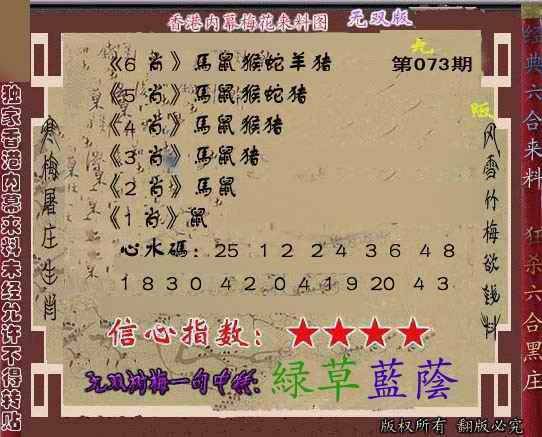 香港内幕梅花来料图 无双版
九
版
《6肖》馬鼠猴蛇羊猪 第073期
《5肖》馬鼠猴蛇猪
《4肖》馬鼠猴猪
《3肖》馬鼠猪
《2肖》馬鼠
《1肖》鼠
心水碼：25 12 24 36 48
18 30 42 04 19 20 43
信心指数：★★★★
一句中特：綠草藍蔭
独家香港内幕来料未经允许不得转贴
寒梅屠庄生肖
风雪竹梅欲钱料
经典六合来料 狂杀六合黑庄
版权所有 翻版必究